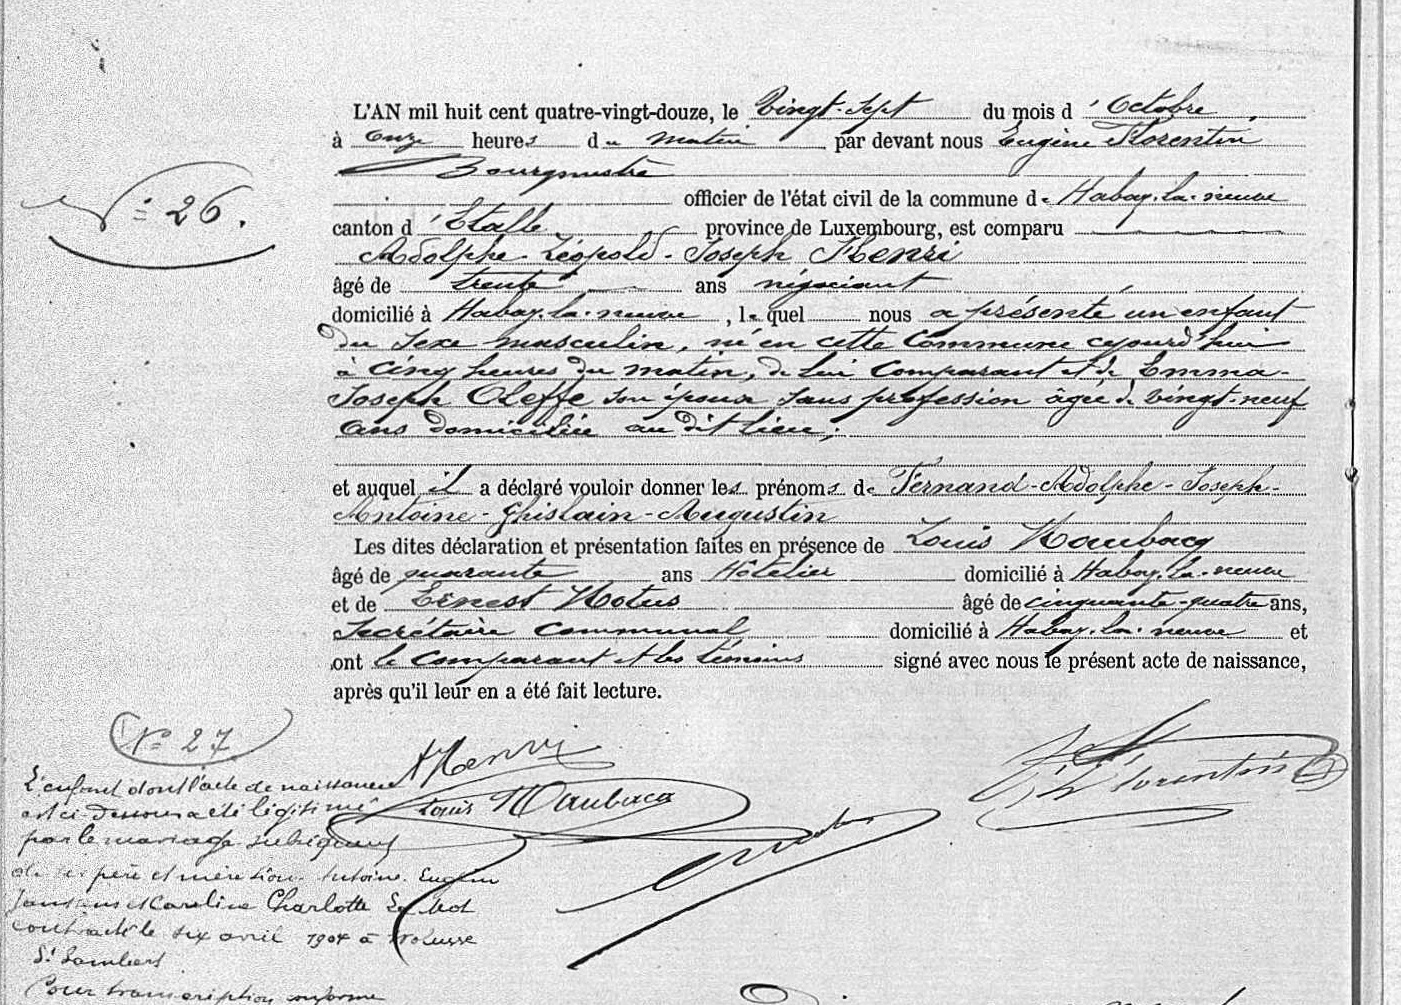 L'AN mil huit cent quatre-vingt-douze, le Vingt-Sept du mois d'Octobre,
à onze heures du matin par devant nous Eugène Florentin
Bourgmestre
officier de l'état civil de la commune de Habay-la-neuve
canton d'Etalle province de Luxembourg, est comparu
Adolphe-Léopold-Joseph Henri
âgé de trente ans négociant
domicilié à Habay-la-neuve, lequel nous a présenté un enfant
du Sexe masculin, né en cette Commune cejourd'hui
à cinq heures du matin, de lui Comparant et de Emma-
Joseph Oleffe son épouse Sans profession âgée de vingt-neuf
ans domiciliée au dit lieu;
et auquel il a déclaré vouloir donner les prénoms de Fernand-Adolphe-Joseph-
Antoine-Ghislain-Augustin
Les dites déclaration et présentation faites en présence de Louis Haubacq
âgé de quarante ans Hôtelier domicilié à Habay-la-neuve
et de Ernest Hotus âgé de cinquante-quatre ans,
Secrétaire Communal domicilié à Habay-la-neuve et
ont le Comparant et les témoins signé avec nous le présent acte de naissance,
après qu'il leur en a été fait lecture.
N° 26.
AHenri
Louis Haubacq
E. Florentin
N° 27
L'enfant dont l'acte de naissance
est ci-dessous a été légitimé
par le mariage subséquent
de ses père et mère Antoine Eugène
et Caroline Charlotte
contracté le six avril 1904 à Woluwe
St Lambert
Pour transcription conforme